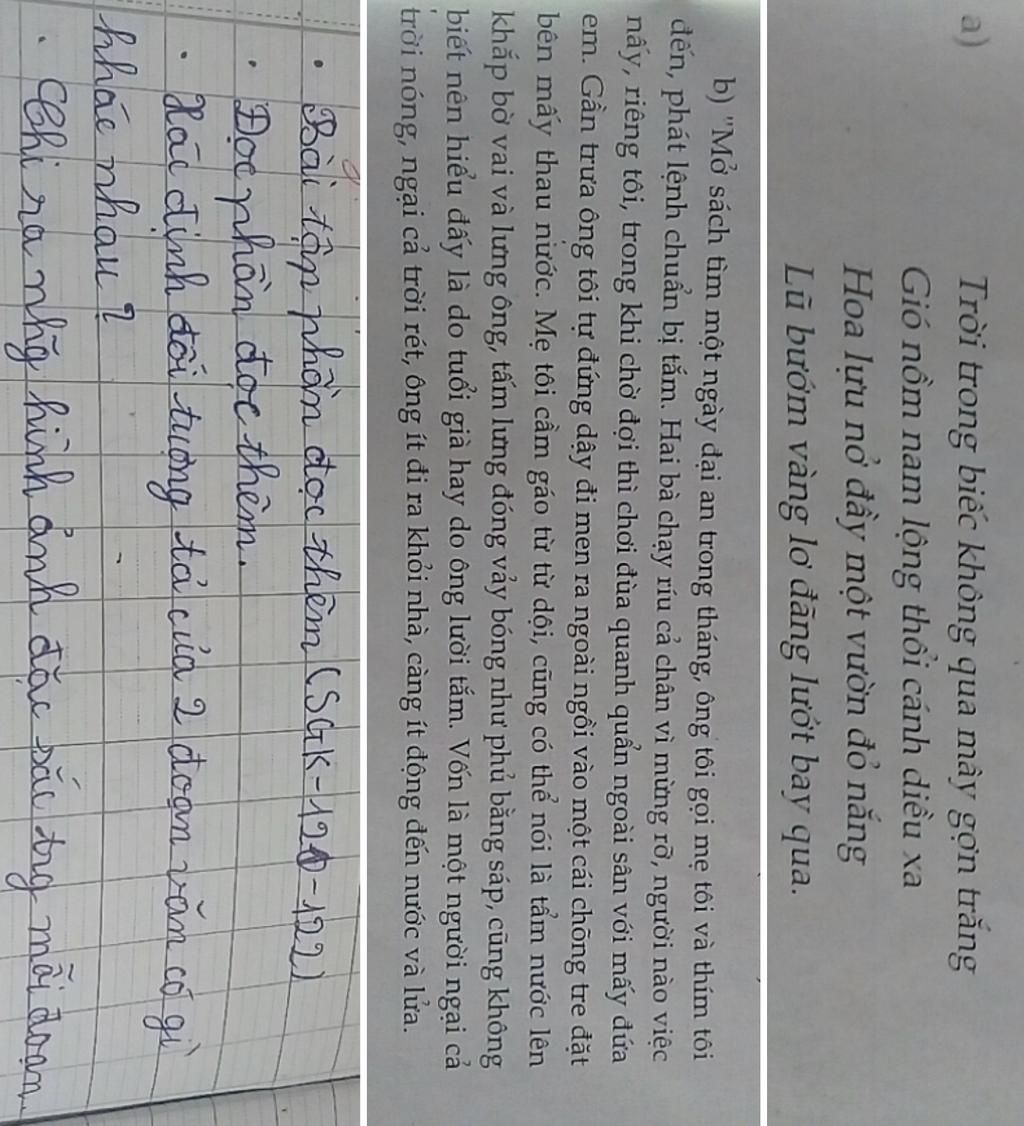 a)
Trời trong biếc không qua mây gợn trắng
Gió nồm nam lộng thổi cánh diều xa
Hoa lựu nở đầy một vườn đỏ nắng
Lũ bướm vàng lơ đãng lướt bay qua.
b) "Mở sách tìm một ngày đại an trong tháng, ông tôi gọi mẹ tôi và thím tôi
đến, phát lệnh chuẩn bị tắm. Hai bà chạy ríu cả chân vì mừng rỡ, người nào việc
nấy, riêng tôi, trong khi chờ đợi thì chơi đùa quanh quẩn ngoài sân với mấy đứa
em. Gần trưa ông tôi tự đứng dậy đi men ra ngoài ngồi vào một cái chõng tre đặt
bên mấy thau nước. Mẹ tôi cầm gáo từ từ dội, cũng có thể nói là tẩm nước lên
khắp bờ vai và lưng ông, tấm lưng đóng vảy bóng như phủ bằng sáp, cũng không
biết nên hiểu đấy là do tuổi già hay do ông lười tắm. Vốn là một người ngại cả
trời nóng, ngại cả trời rét, ông ít đi ra khỏi nhà, càng ít động đến nước và lửa.
• Bài tập phần đọc thêm (SGK-120-122)
• Đọc phần đọc thêm.
• Xác định đối tượng tả của 2 đoạn văn có gì
khác nhau?
• Chỉ ra nhg hình ảnh đặc sắc trg mỗi đoạn.